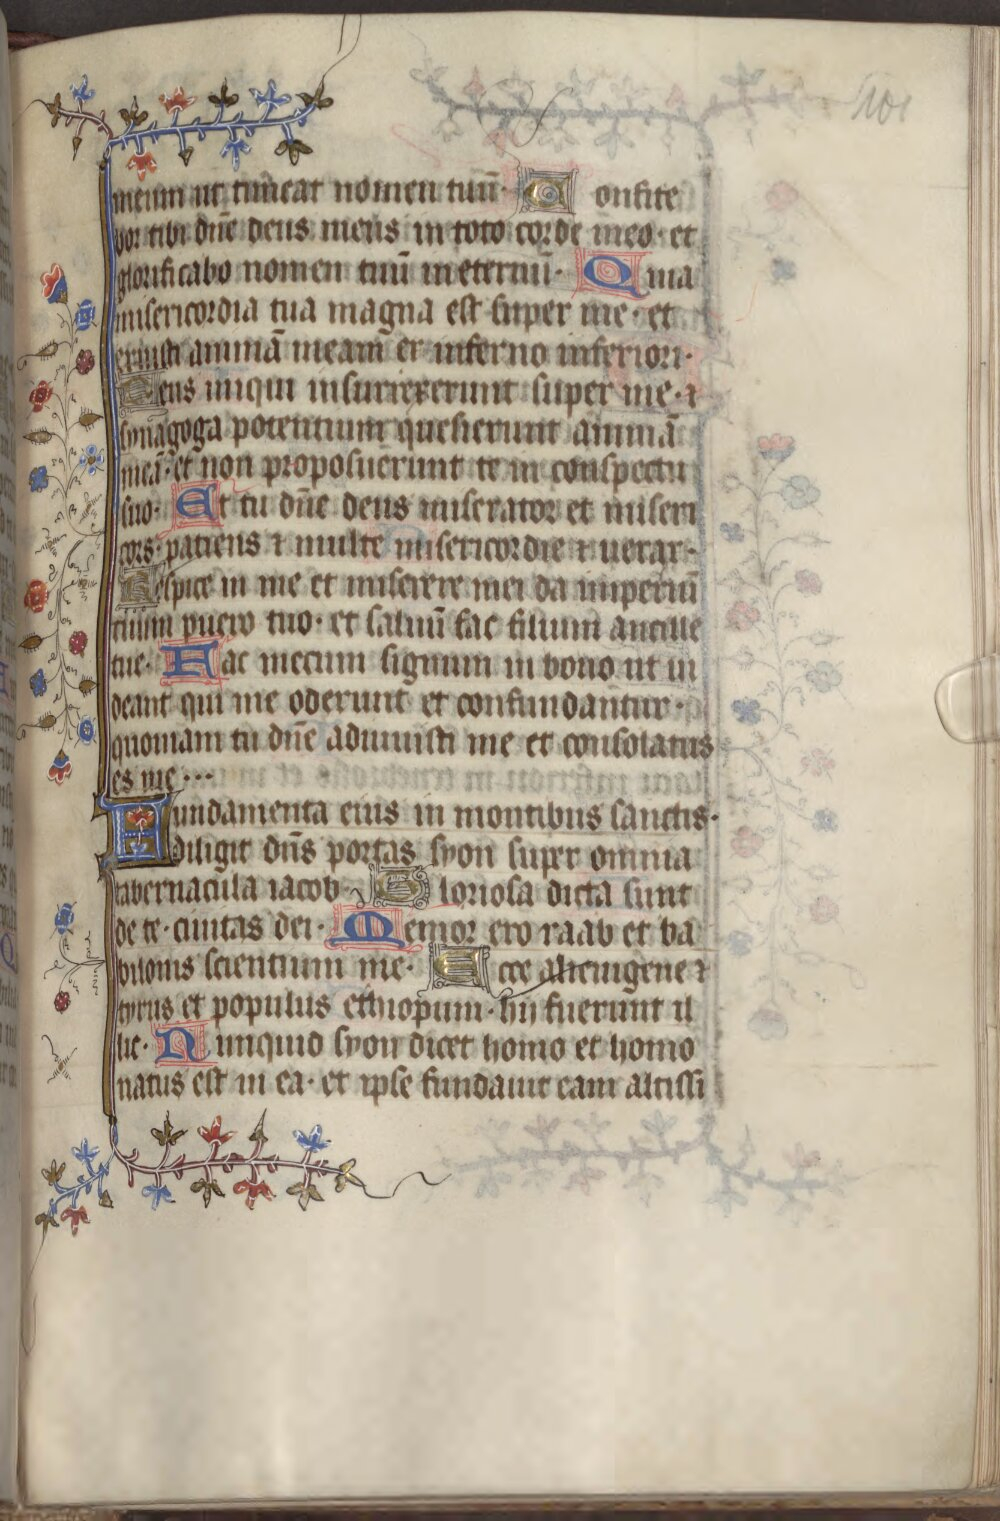 101
meum ut timeat nomen tuū· Confite
bor tibi dn̄e deus meus in toto corde meo· et
glorificabo nomen tuū in eternū· Quia
misericordia tua magna est super me· et
eruisti animā meam ex inferno inferiori·
Deus iniqui insurrexerunt super me· ⁊
synagoga potentium quesierunt animā
meā· et non proposuerunt te in conspectu
suo· Et tu dn̄e deus miserator et miseri
cors· patiens ⁊ multe misericordie ⁊ uerax·
Respice in me et miserere mei da imperiū
tuum puero tuo· et saluū fac filium ancille
tue· Fac mecum signum in bono ut ui
deant qui me oderunt et confundantur·
quoniam tu dn̄e adiuuisti me et consolatus
es me···
Fundamenta eius in montibus sanctis·
diligit dn̄s portas syon super omnia
tabernacula iacob· Gloriosa dicta sunt
de te· ciuitas dei· Memor ero raab et ba
bilonis scientium me· Ecce alienigene ⁊
tyrus et populus ethiopum· hii fuerunt il
lic· Nunquid syon dicet homo et homo
natus est in ea· et ipse fundauit eam altissi